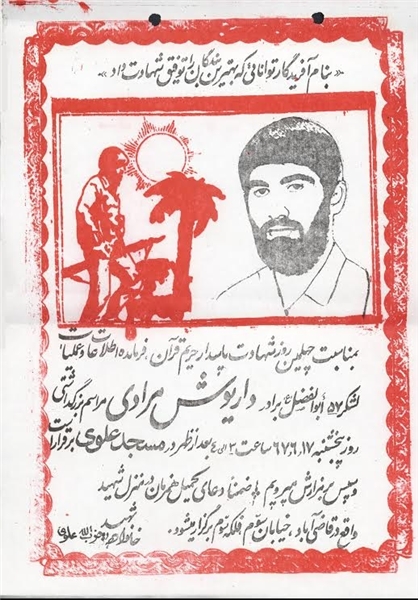 «بنام آفریدگار توانائی که بهترین بندگان را توفیق شهادت داد»
بمناسبت چهلمین روز شهادت پاسدار حریم قرآن، فرمانده اطلاعات و عملیات
لشکر ۵۷ ابوالفضل ع برادر داریوش مرادی مراسم بزرگداشتی
روز پنجشنبه ۶۷،۶،۱۷ ساعت ۲ الی ۴ بعد از ظهر در مسجد علوی برقرار است
و سپس بر مزارش میرویم ضمنا دعای کمیل همزمان در منزل شهید
واقع در قاضی آباد، خیابان سوم فلکه سوم برگزار میشود.
خانواده شهید و حزب الله علوی